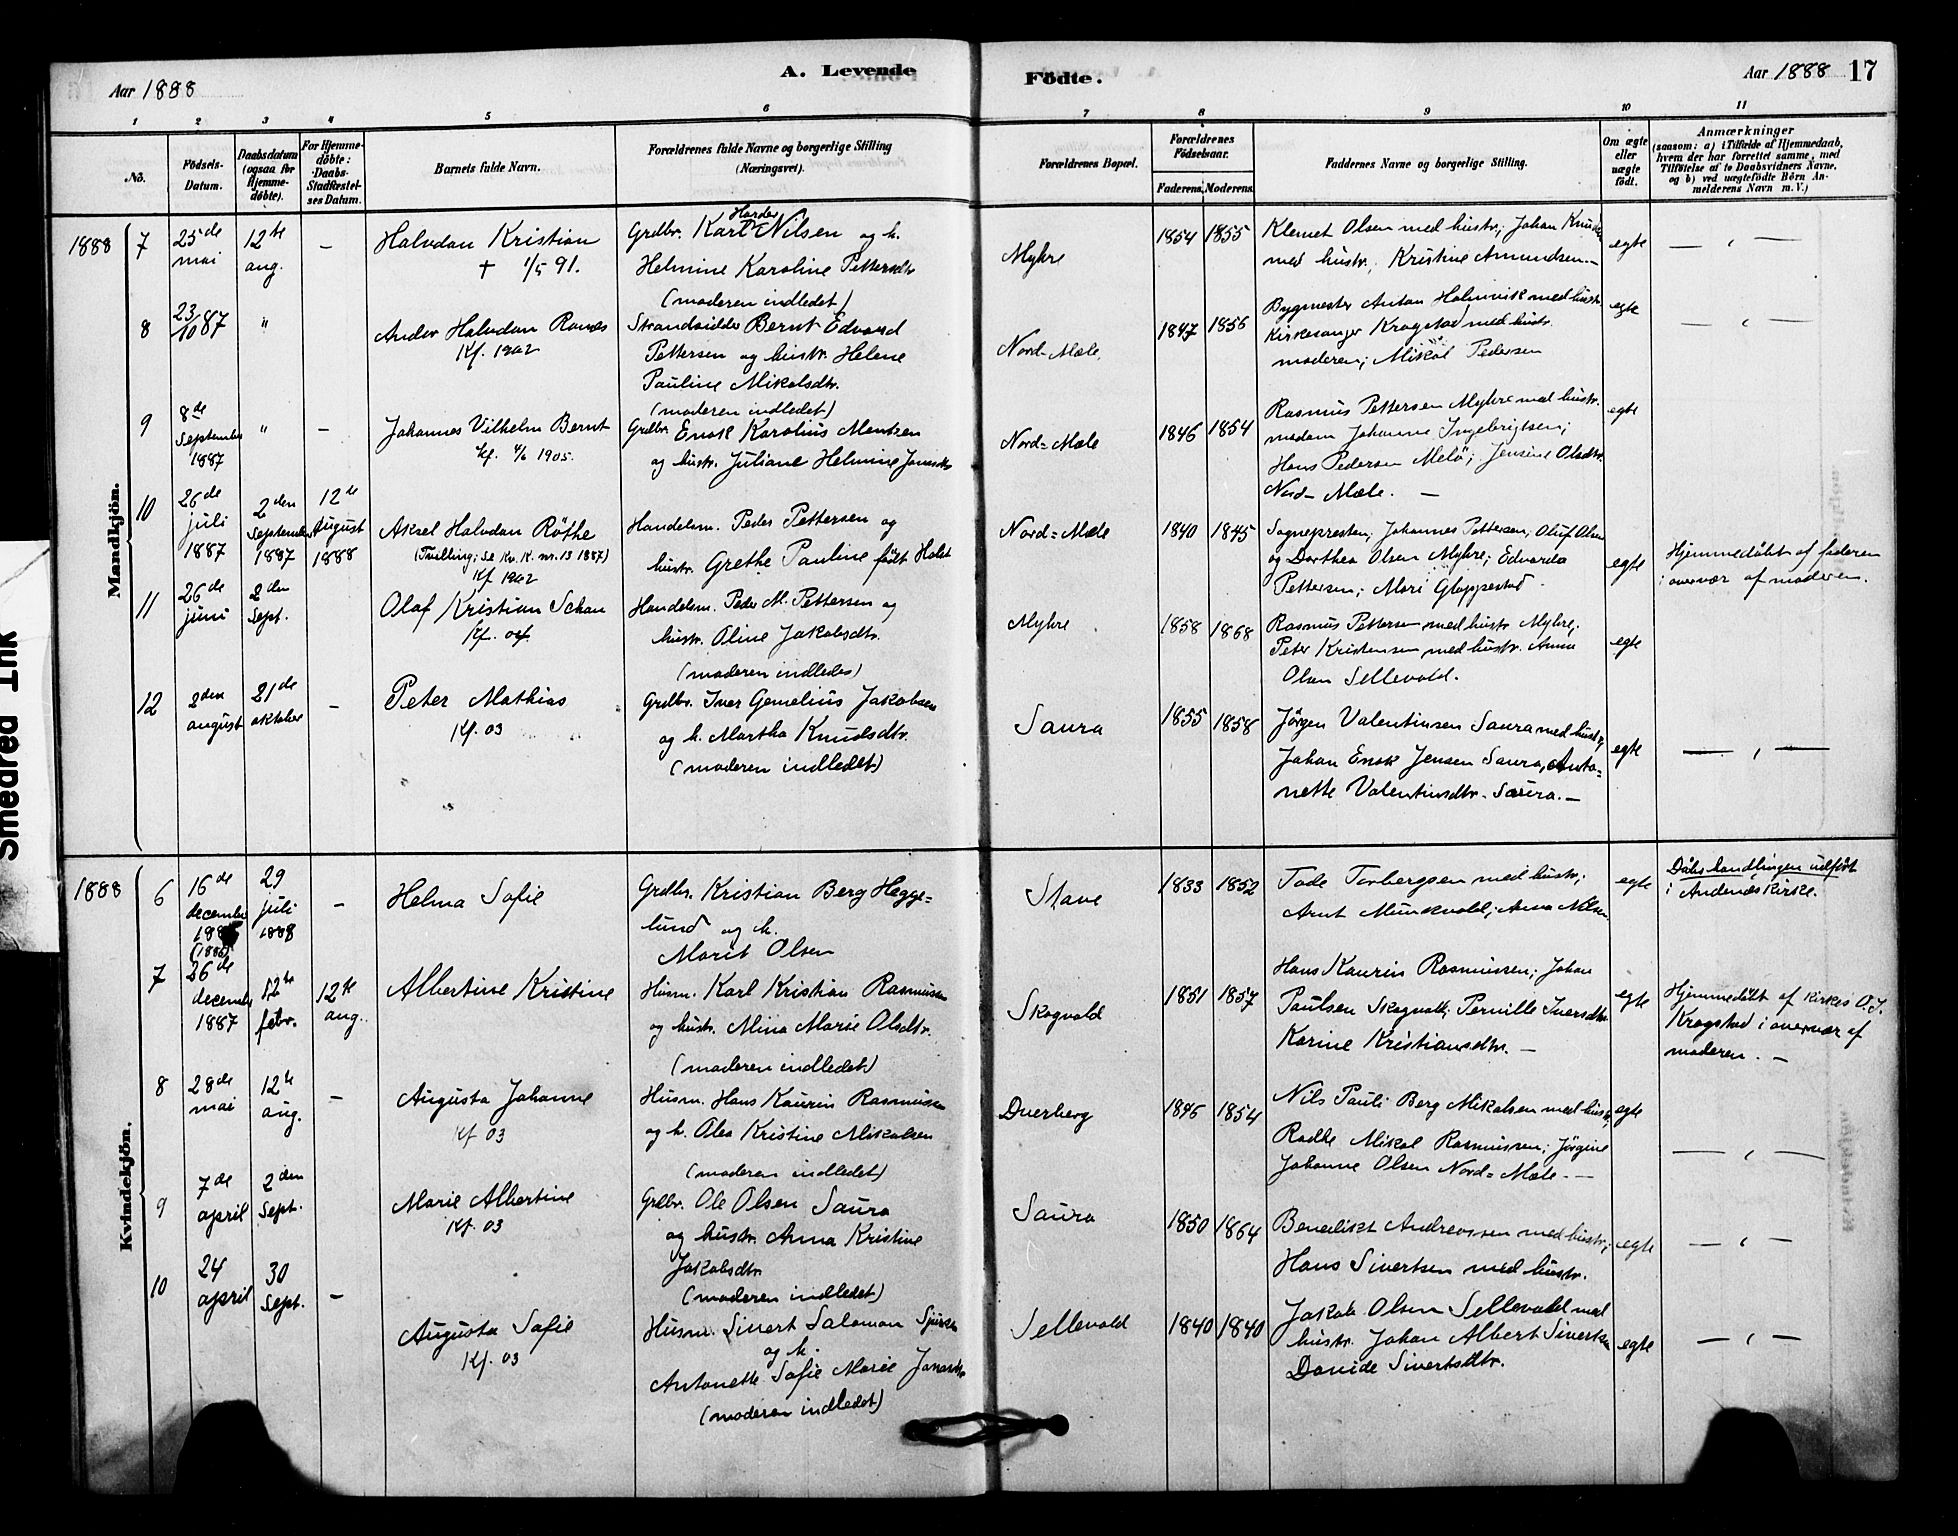 Aar 1888
A. Levende
Födte.
Aar 1888 17
1 2 3 4 5 6 7 8 9 10 11
No.
Födsels-Datum.
Daabsdatum (ogsaa for Hjemme-döbte).
For Hjemme-döbte: Daabs-Stadfæstel-ses Datum.
Barnets fulde Navn.
Forældrenes fulde Navne og borgerlige Stilling (Næringsvei).
Forældrenes Bopæl.
Forældrenes Födselsaar.
Faderens. Moderens.
Faddernes Navne og borgerlige Stilling.
Om ægte eller uægte födt.
Anmærkninger
(saasom: a) i Tilfælde af Hjemmedaab,
hvem der har forrettet samme, med
Tilföielse af to Daabsvidners Navne,
og b) ved uægtefödte Börn An-
melderens Navn m. V.)
Mandkjön.
1888 7 25de mai 12te aug. –
Halvdan Kristian
+ 1/5 91.
Grdbr. Karl Harder Nilsen og h.
Helmine Karoline Pettersdtr
(moderen indledet)
Myhre 1854 1855
Klemet Olsen med hustr.; Johan Knudsen
med hustr.; Kristine Amundsen.–
egte — " —
8 23/10 87 "
Ander Halvdan Ranes
Kf. 1902
Strandsidder Bernt Edvard
Pettersen og hustr. Helene
Pauline Mikalsdtr.
(moderen indledet)
Nord-Mæle. 1847 1856
Bygmester Anton Holmvik med hustr.
Kirkesanger Kragstad med hustr.
moderen; Mikal Pedersen
egte — " —
9 8de September 1887 " –
Johannes Vilhelm Bernt
Kf. 4/6 1905.
Grdbr. Enok Karolius Mentsen
og hustr. Juliane Helmine Jonasdtr
Nord=Mæle 1846 1854
Rasmus Pettersen Myhre med hustr.
madam Johanne Ingebrigtsen;
Hans Pedersen Melö; Jensine Olsdtr.
Nord-Mæle. —
egte
10 26de juli 1887 2den September 1887 12te August 1888
Aksel Halvdan Röthe
(Tvilling; se Kv. K. nr. 13 1887)
Kf 1902
Handelsm. Peder Pettersen og
hustr. Grethe Pauline født Holst
Nord=Mæle 1840 1845
Sognepresten; Johannes Pettersen; Oluf Olsen
og Dorthea Olsen Myhre; Edvarda
Pettersen; Mari Gloppestad
egte
Hjemmedöbt af faderen
i overvær af moderen.
11 26de juni 2den Sept.
Olaf Kristian Schan
Kf. 04.
Handelsm. Peder M. Pettersen og
hustr. Oline Jakobsdtr.
(moderen indledes)
Myhre 1858 1868
Rasmus Pettersen med hustr. Myhre;
Peter Kristensen med hustr. Anna
Olsen Sellevold.
egte
12 2den august 21de oktober –
Peter Mathias
Kf. 03
Grdbr. Iver Cornelius Jakobsen
og h. Martha Knudsdtr.
(moderen indledet)
Saura 1855 1858
Jörgen Valentinsen Saura med hustr.;
Johan Enok Jensen Saura, Anto=
nette Valentinsdtr. Saura.—
egte — " —
Kvindekjön.
1888 6 16de december (1886) 29 juli 1888 –
Helma Sofie
Grdbr. Kristian Berg Hegge=
lund og h.
Marit Olsen
Stave 1833 1852
Tode Torbergsen med hustr;
Arnt Munkvold; Anna Nilsen
egte
Dåbshandlingen udført
i Andenes kirke.
7 26de december 1887 12te febr. 12te aug.
Albertine Kristine
Husm. Karl Kristian Rasmussen
og hustr. Mina Marie Olsdtr.
(moderen indledet)
Skogvold 1851 1857
Hans Kaurin Rasmussen; Johan
Paulsen Skogvold; Pernille Iversdtr
Karine Kristiansdtr. —
egte
Hjemmedöbt af kirkes. O.J.
Kragstad i overvær af
moderen. —
8 28de mai 12te aug. –
Augusta Johanne
Kf 03
Husm. Hans Kaurin Rasmussen
og h. Olea Kristine Mikalsen
(moderen indledet)
Dverberg 1846 1854
Nils Pauli Berg Mikalsen med hustr.;
Mikal Rasmussen; Jörgine
Johanne Olsen Nord=Mæle. —
egte — " —
9 7de april 2den Sept.
Marie Albertine
Kf. 03
Grdbr. Ole Olsen Saura
og hustr. Anna Kristine
Jakobsdtr.
(moderen indledet)
Saura 1850 1864
Benedikt Andreassen med hustr;
Hans Sivertsen med hustr.
egte — " —
10 24 april 30 Sept. –
Augusta Sofie
Kf. 03
Husm. Sivert Salomon Sjursen
og h.
Antonette Sofie Marie Jonasdtr
(moderen indledet)
Sellevold 1840 1840
Jakob Olsen Sellevold med
hustr. Johan Albert Sivertsen
Davide Sivertsdtr.
egte — " —
Smedred Ink